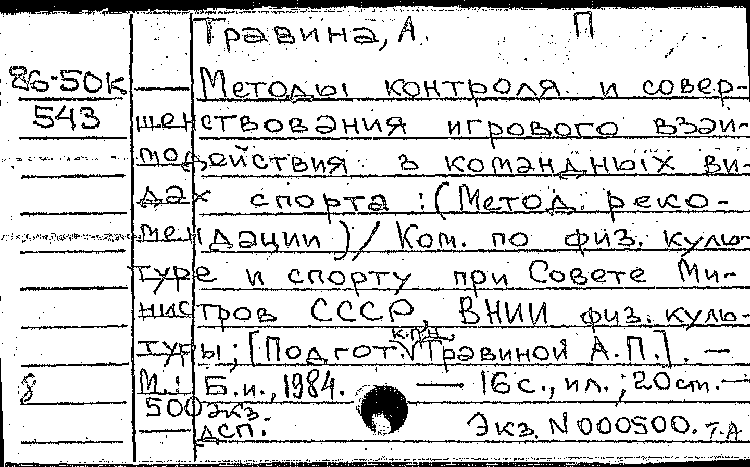 Травина, А. П
86-50к
Методы контроля и совер-
543
шенствования игрового взаи-
модействия в командных ви-
дах спорта: (Метод. реко-
мендации) / Ком. по физ. куль-
туре и спорту при Совете Ми-
нистров СССР, ВНИИ физ. куль-
к.п.н.
туры; [Подгот. V Травиной А.П.]. —
8 М.: Б.и., 1984. — 16 с., ил.; 20 см. —
500 экз.
ДСП. Экз. N 000500. т.А